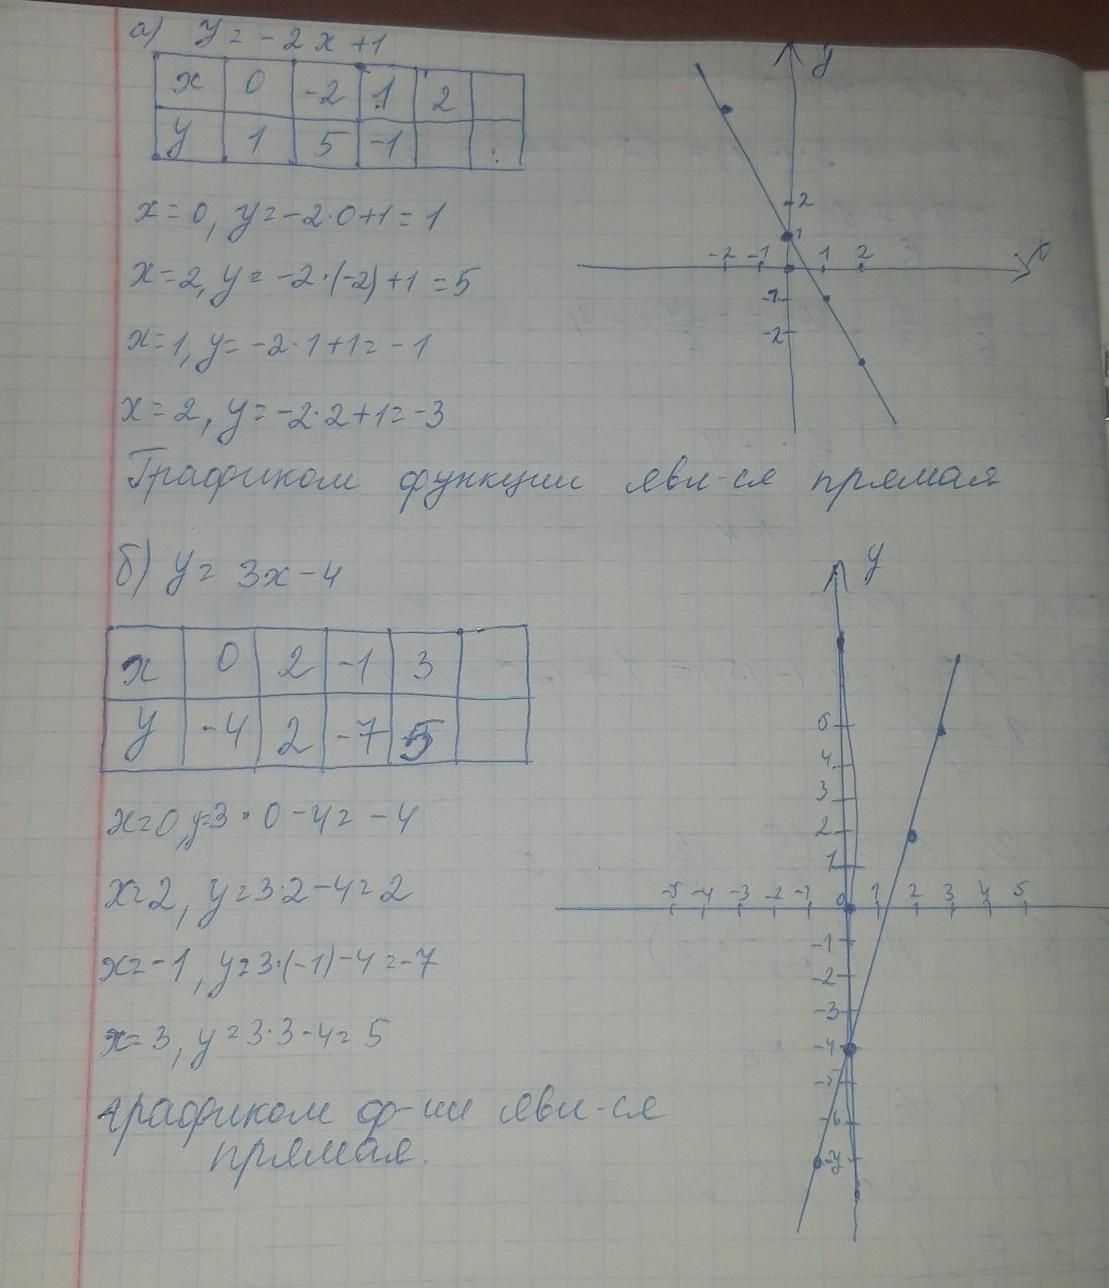 а) y = -2x+1
x 0 -2 1 2
y 1 5 -1
x=0, y=-2·0+1=1
x=2, y= -2·(-2)+1=5
x=1, y= -2·1+1=-1
x=2, y=-2·2+1=-3
Графиком функции явл-ся прямая
y
2
1
-2 -1 1 2 x
-1
-2
б) y= 3x-4
x 0 2 -1 3
y -4 2 -7 5
x=0, y=3·0-4=-4
x=2, y=3·2-4=2
x=-1, y=3·(-1)-4=-7
x=3, y=3·3-4=5
графиком ф-ии явл-ся
прямая.
y
4
3
2
1
-5 -4 -3 -2 -1 0 1 2 3 4 5
-1
-2
-3
-4
-5
6
-7